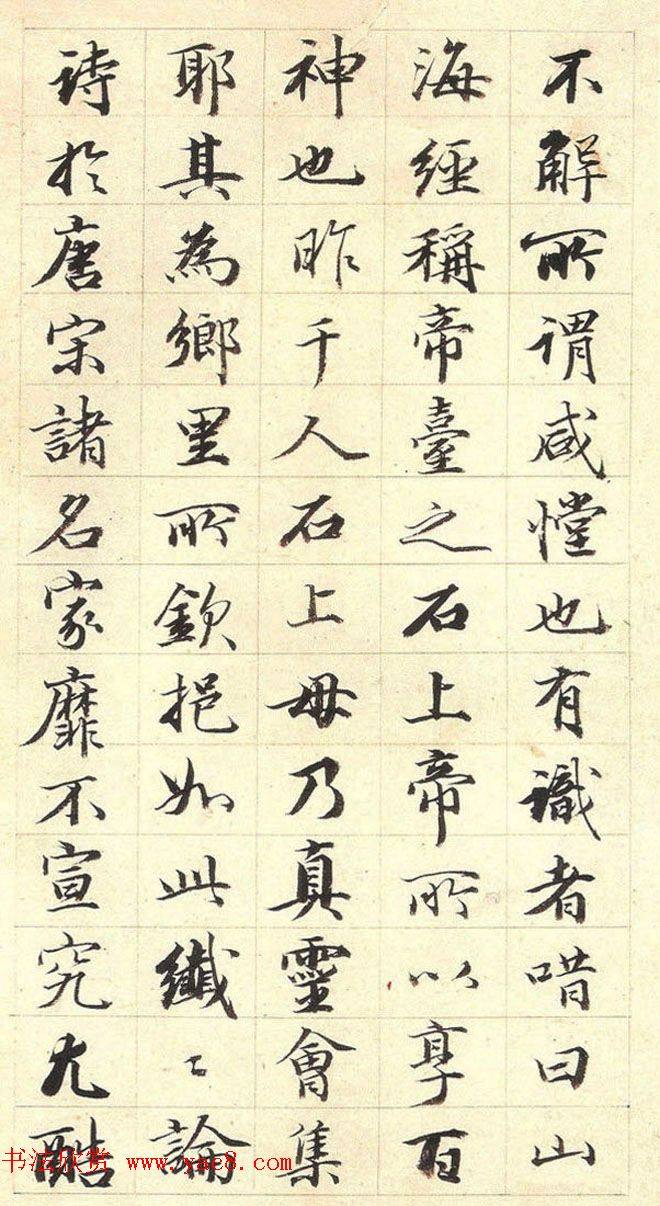 不解所謂咸戃也有識者唶曰山
海經稱帝臺之石上帝所以享百
神也昨千人石上毋乃真靈會集
耶其為鄉里所欽挹如此纖〻論
詩於唐宋諸名家靡不宣究尤酷
书法欣赏 www.yac8.com